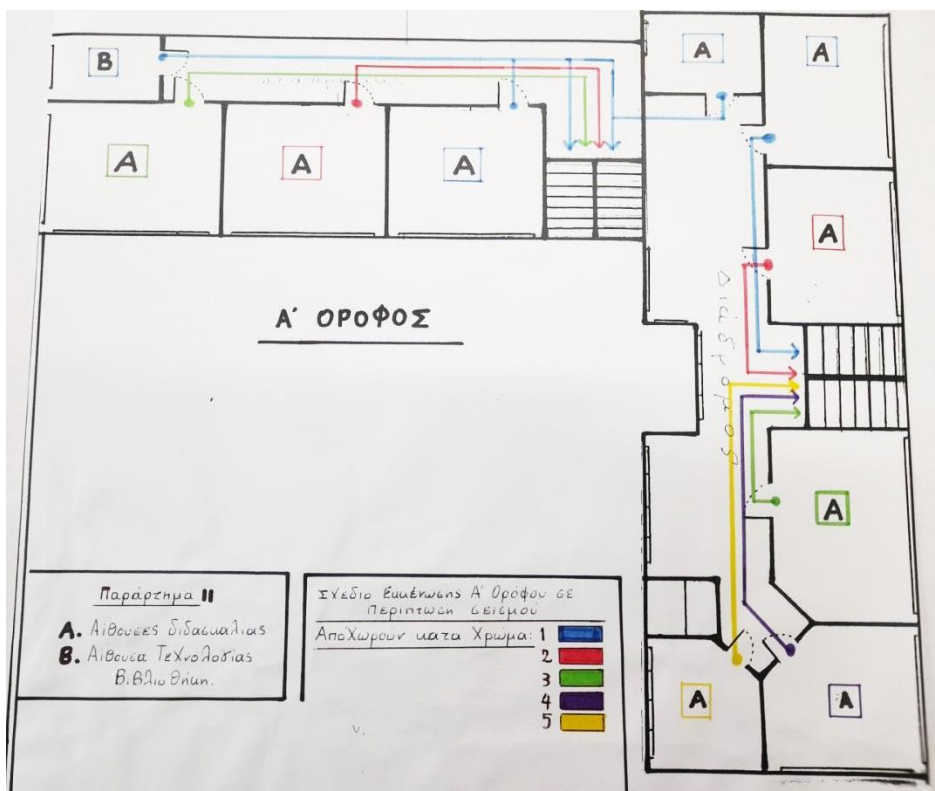 B
A
A
A
A
A
A
A
A
A
Α' ΟΡΟΦΟΣ
Διάδρομος
Παράρτημα II
Α. Αίθουσες διδασκαλίας
Β. Αίθουσα Τεχνολογίας
Βιβλιοθήκη.
Σχέδιο Εκκένωσης Α' Ορόφου σε
Περίπτωση σεισμού
Αποχωρούν κατα Χρώμα: 1
2
3
4
5